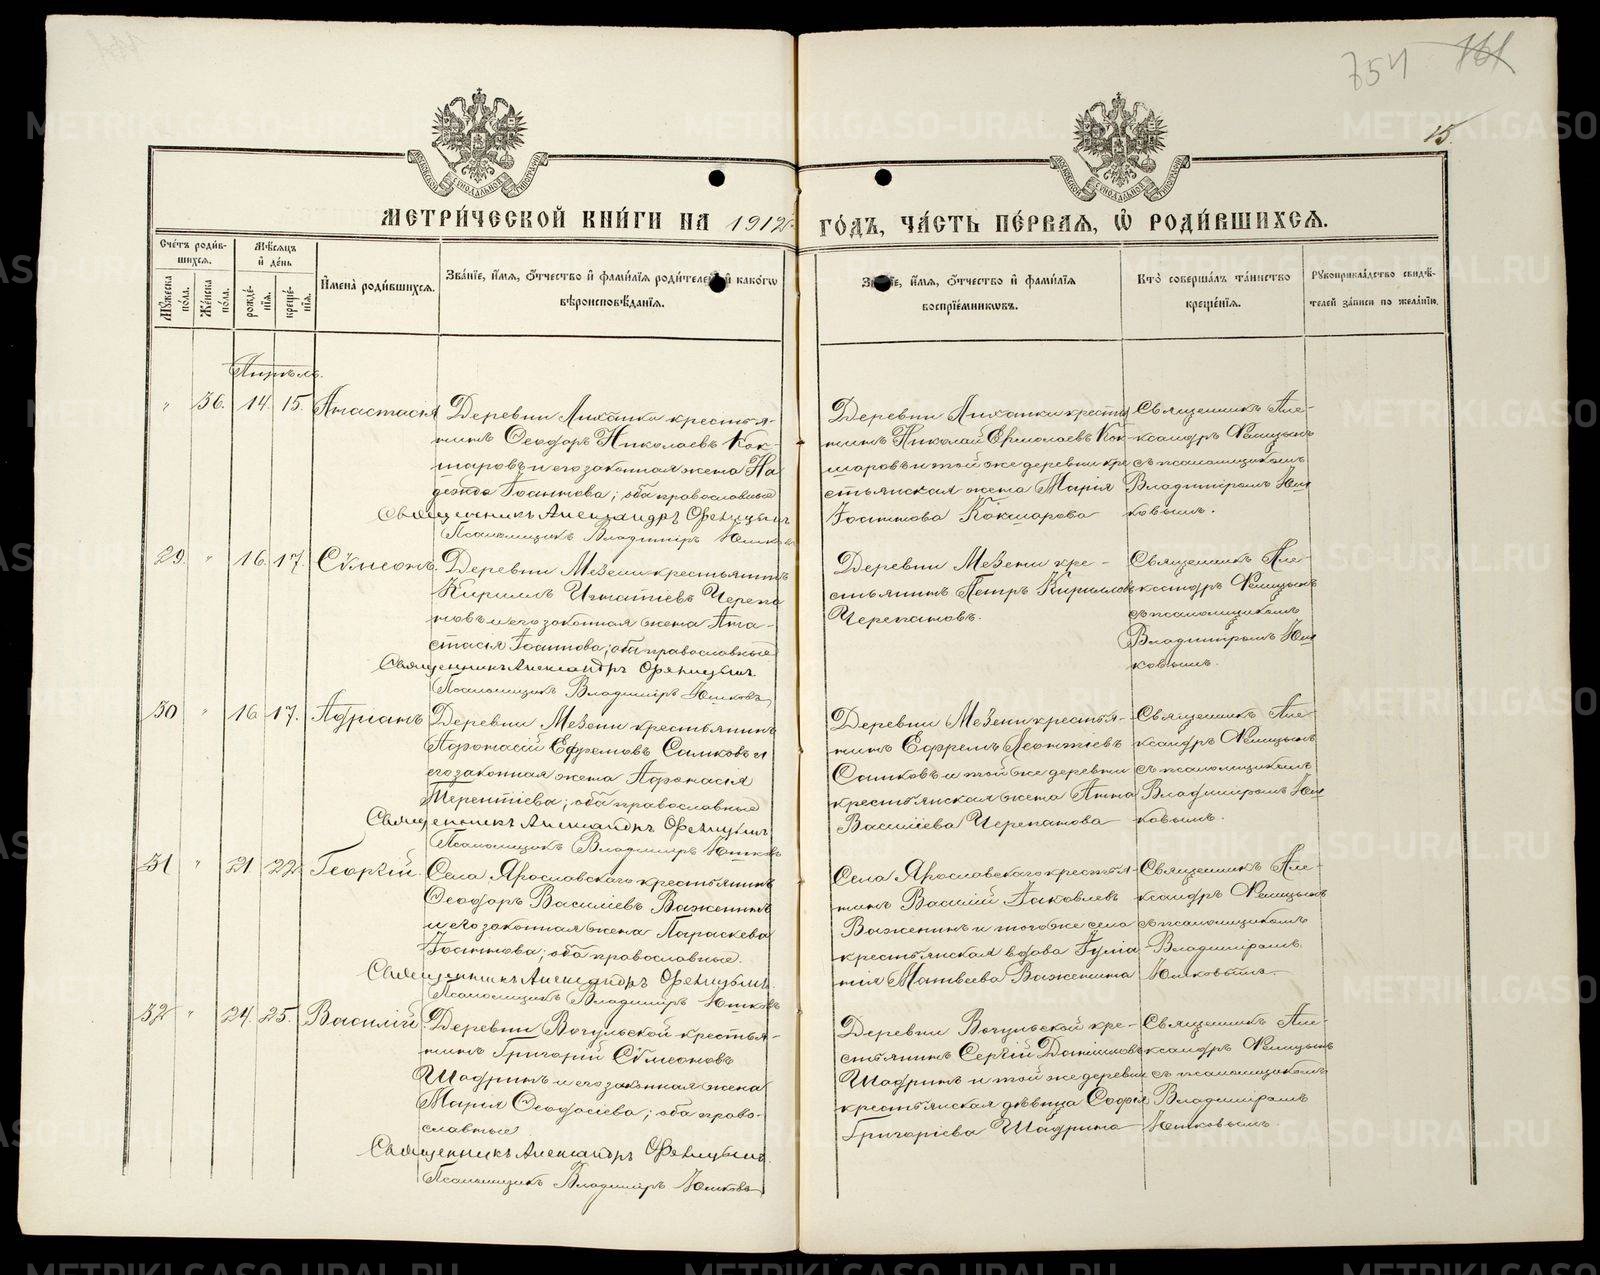 754 161
15
МЕТРИ́ЧЕСКОЙ КНИ́ГИ НА 1912
ГО́ДЪ, ЧА́СТЬ ПЕ́РВАЯ, Ѡ҆ РОДИ́ВШИХСЯ.
Сче́тъ роди́в-
шихся.
Му́жеска по́ла.
Же́нска по́ла.
Мѣ́сяцъ
и҆ де́нь
рожде́-
нїѧ.
креще́-
нїѧ.
И҆мена̀ роди́вшихся.
Зва́нїе, и҆́мя, ѻ҆́тчество и҆ фами́лїя роди́телей и҆ како́гѡ
вѣроисповѣ́данїя.
Зва́нїе, и҆́мя, ѻ҆́тчество и҆ фами́лїя
воспрїе́мникѡвъ.
Кто̀ соверша́лъ та́инство
креще́нїя.
Рукоприкла́дство свидѣ́-
телей за́писи по жела́нїю.
Апрѣль.
" 36. 14. 15. Анастасія
Деревни Лиханки крестья-
нинъ Ѳеодоръ Николаевъ Кок-
шаровъ и его законная жена На
дежда Іоаннова; оба православные
Священникъ Александръ
Псаломщикъ Владиміръ Юшковъ
Деревни Лиханки крестья
нинъ Николай Ермолаевъ Кок-
шаровъ и той же деревни кре
стьянская жена Марія
Іоаннова Кокшарова
Священникъ Але-
ксандръ
съ псаломщикомъ
Владиміромъ Юш
ковымъ.
29. " 16. 17. Сѵмеонъ.
Деревни Мезени крестьянинъ
Кириллъ Игнатіевъ Черепа
новъ и его законная жена Ана-
стасія Іоаннова; оба православные
Священникъ Александръ
Псаломщикъ Владиміръ Юшковъ
Деревни Мезени кре-
стьянинъ Петръ Кирилловъ
Черепановъ.
Священникъ Але-
ксандръ
съ псаломщикомъ
Владиміромъ Юш
ковымъ.
30 " 16 17. Адріанъ
Деревни Мезени крестьянинъ
Афанасій Ефремовъ Сашковъ и
его законная жена Афанасія
Терентіева; оба православные
Священникъ Александръ
Псаломщикъ Владиміръ Юшковъ
Деревни Мезени крестья-
нинъ Ефремъ Леонтіевъ
Сашковъ и той же деревни
крестьянская жена Анна
Васильева Черепанова
Священникъ Але
ксандръ
съ псаломщикомъ
Владиміромъ Юш
ковымъ.
31 " 21 22 Георгій.
Села Ярославскаго крестьянинъ
Ѳеодоръ Василіевъ Важенинъ
и его законная жена Параскева
Іоаннова; оба православные.
Священникъ Александръ
Псаломщикъ Владиміръ Юшковъ
Села Ярославскаго крестья-
нинъ Василій Іаковлевъ
Важенинъ и того же села
крестьянская вдова Іуліа
нія Матвѣева Важенина
Священникъ Але-
ксандръ
съ псаломщикомъ
Владиміромъ
Юшковымъ.
32 " 24. 25. Василій
Деревни Вогульской крестья-
нинъ Григорій Сѵмеоновъ
Шадринъ и его законная жена
Марія Ѳеодосіева; оба право-
славные
Священникъ Александръ
Псаломщикъ Владиміръ Юшковъ
Деревни Вогульской кре-
стьянинъ Сергій Даниловъ
Шадринъ и той же деревни
крестьянская дѣвица Софія
Григоріева Шадрина
Священникъ Але-
ксандръ
съ псаломщикомъ
Владиміромъ
Юшковымъ.
METRIKI.GASO-URAL.RU